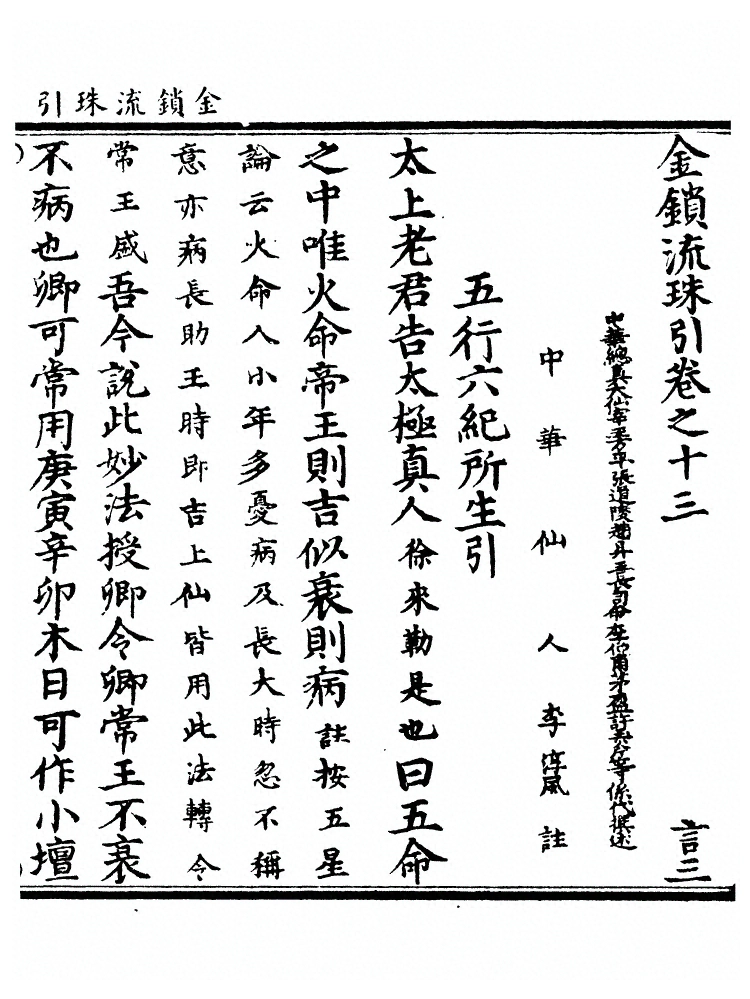 金鎖流珠引
金鎖流珠引卷之十三 言三
中華總真大仙宰王方平張道陵趙昇王長司命李仲甫茅盈許玉斧等係代撰述
中華仙人李淳風註
五行六紀所生引
太上老君告太極真人徐來勒是也曰五命
之中唯火命帝王則吉似衰則病註按五星
論云火命人小年多憂病及長大時忽不稱
意亦病長助王時即吉上仙皆用此法轉令
常王盛吾今說此妙法授卿令卿常王不衰
不病也卿可常用庚寅辛卯木日可作小壇